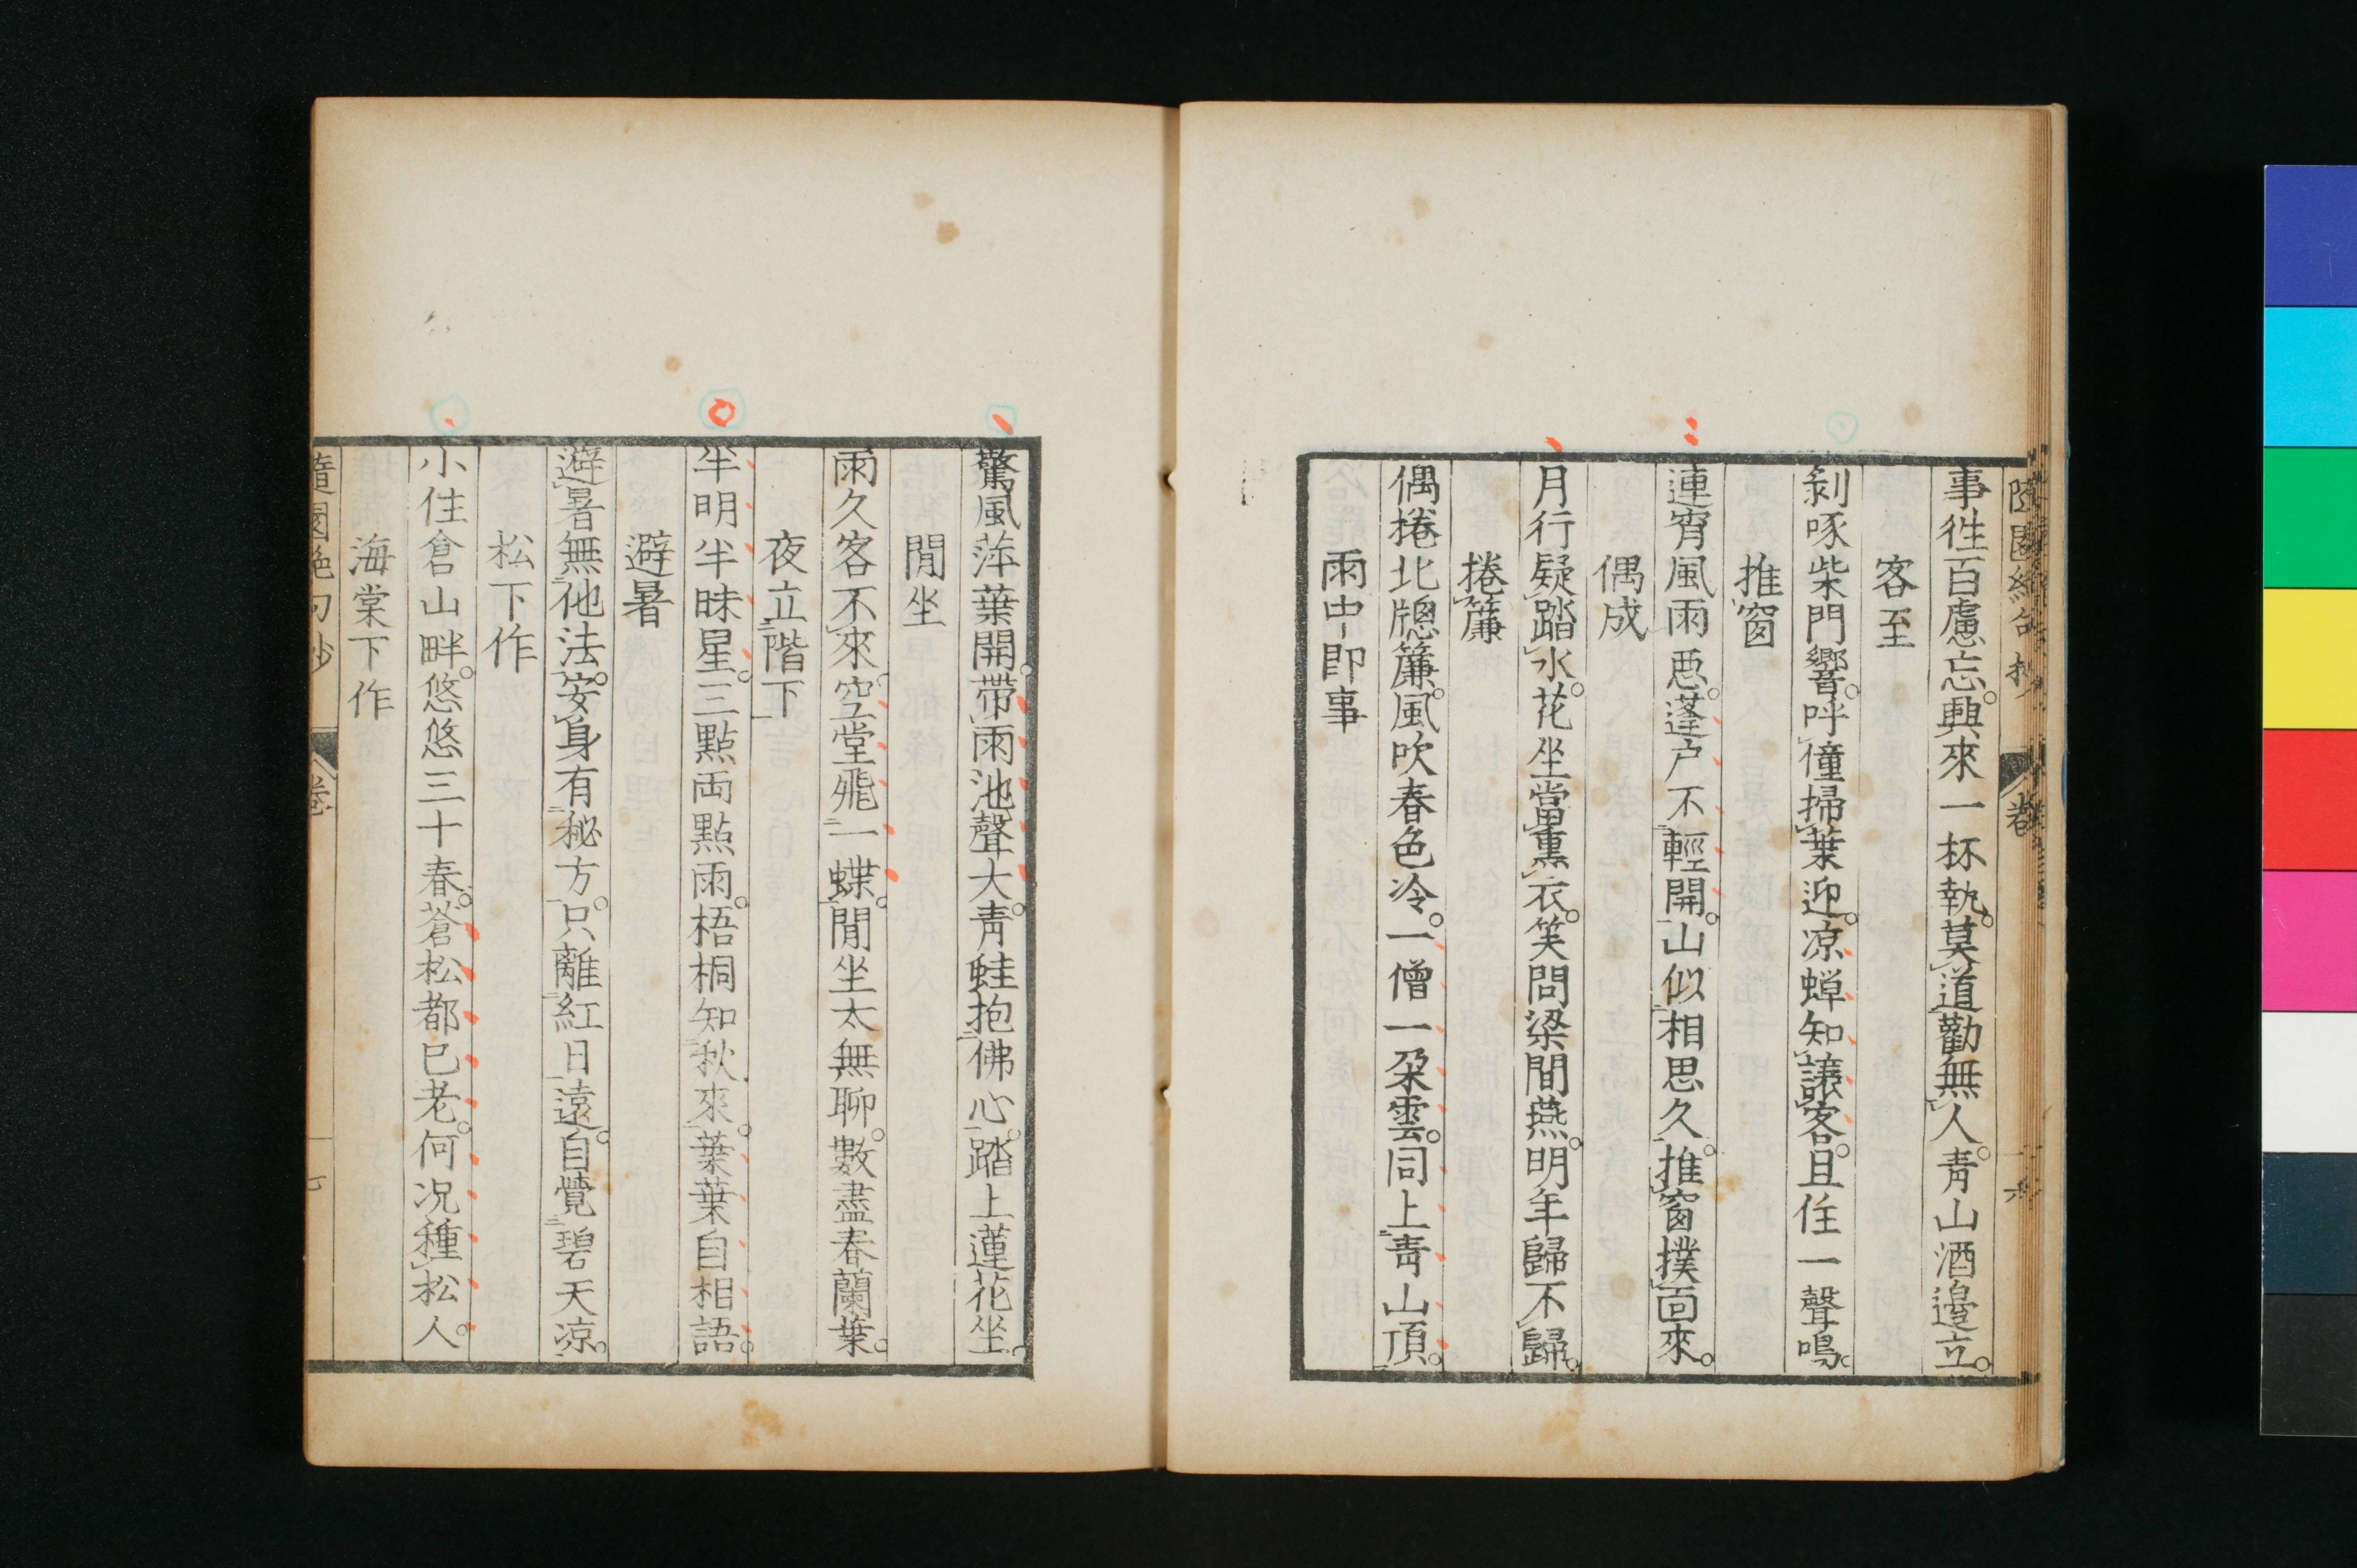 隨園絶句抄 卷
事徃百慮忘興來一杯執莫道勸無人青山酒邊立
客至
剝啄柴門響呼僮掃葉迎凉蟬知讓客且住一聲鳴
推窗
連宵風雨悪蓬戸不輕開山似相思久推窗撲面來
偶成
月行疑踏水花坐當薫衣笑問梁間燕明年歸不歸
捲簾
偶捲北牕簾風吹春色冷一僧一朶雲同上青山頂
雨中即事
驚風萍葉開帶雨池聲大青蛙抱佛心踏上蓮花坐
閒坐
雨久客不來空堂飛一蝶閒坐太無聊數盡春蘭葉
夜立階下
半明半昧星三點両點雨梧桐知秋來葉葉自相語
避暑
避暑無他法安身有秘方只離紅日遠自覺碧天凉
松下作
小住倉山畔悠悠三十春蒼松都已老何况種松人
海棠下作
隨園絶句抄 卷 七